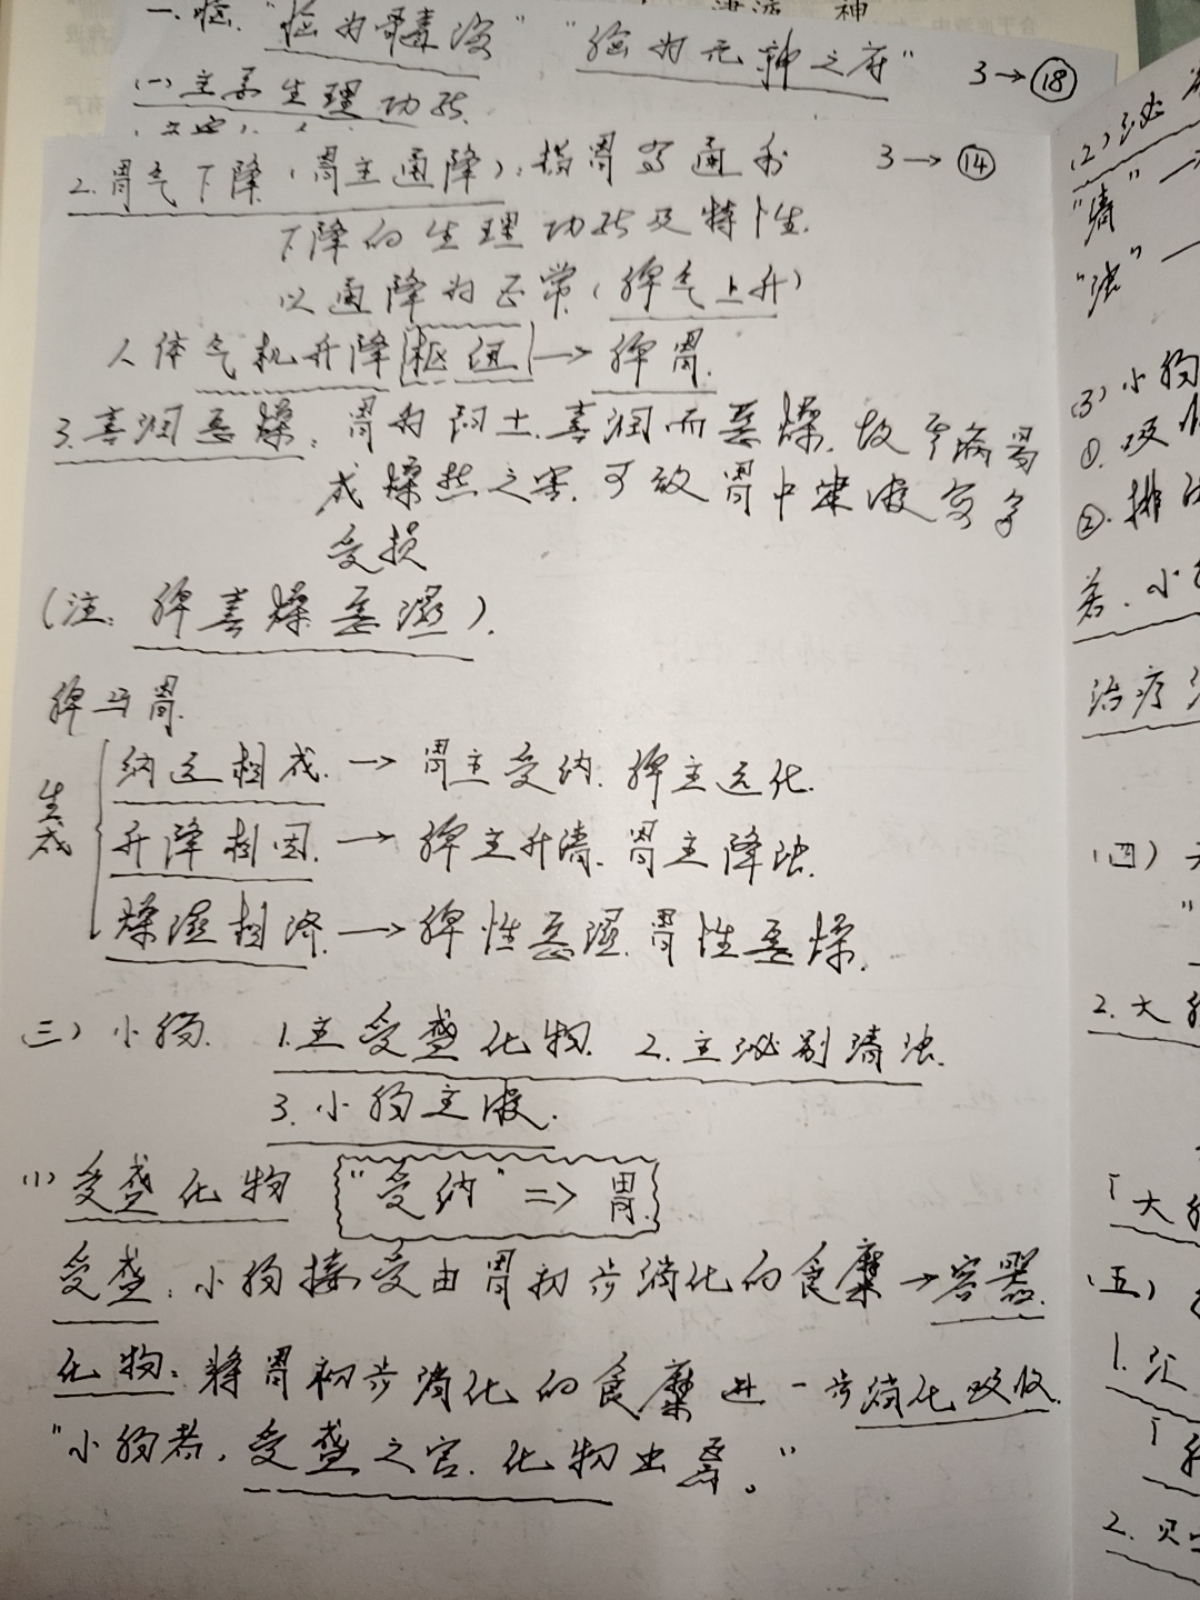 一.脑.“脑为髓海”“脑为元神之府” 3→⑱
(一)主要生理功能
2.胃气下降(胃主通降):指胃宜通利 3→⑭
下降的生理功能及特性.
以通降为正常(脾气上升)
人体气机升降枢纽→脾胃.
3.喜润恶燥:胃为阳土.喜润而恶燥.故其病易
成燥热之害.可致胃中津液每多
受损
(注:脾喜燥恶湿).
脾与胃.
生成
纳运相成.→胃主受纳.脾主运化.
升降相因.→脾主升清.胃主降浊.
燥湿相济.→脾性恶湿.胃性恶燥.
三)小肠. 1.主受盛化物. 2.主泌别清浊.
3.小肠主液.
(1)受盛化物 “受纳”=>胃.
受盛:小肠接受由胃初步消化的食糜→容器.
化物:将胃初步消化的食糜进一步消化吸收.
“小肠者,受盛之官.化物出焉。”
(2)泌
“清”—
“浊”—
(3)小肠
①.吸
②.排
若.小
治疗
(四)
2.大
「大
(五)
1.汇
「
2.贝